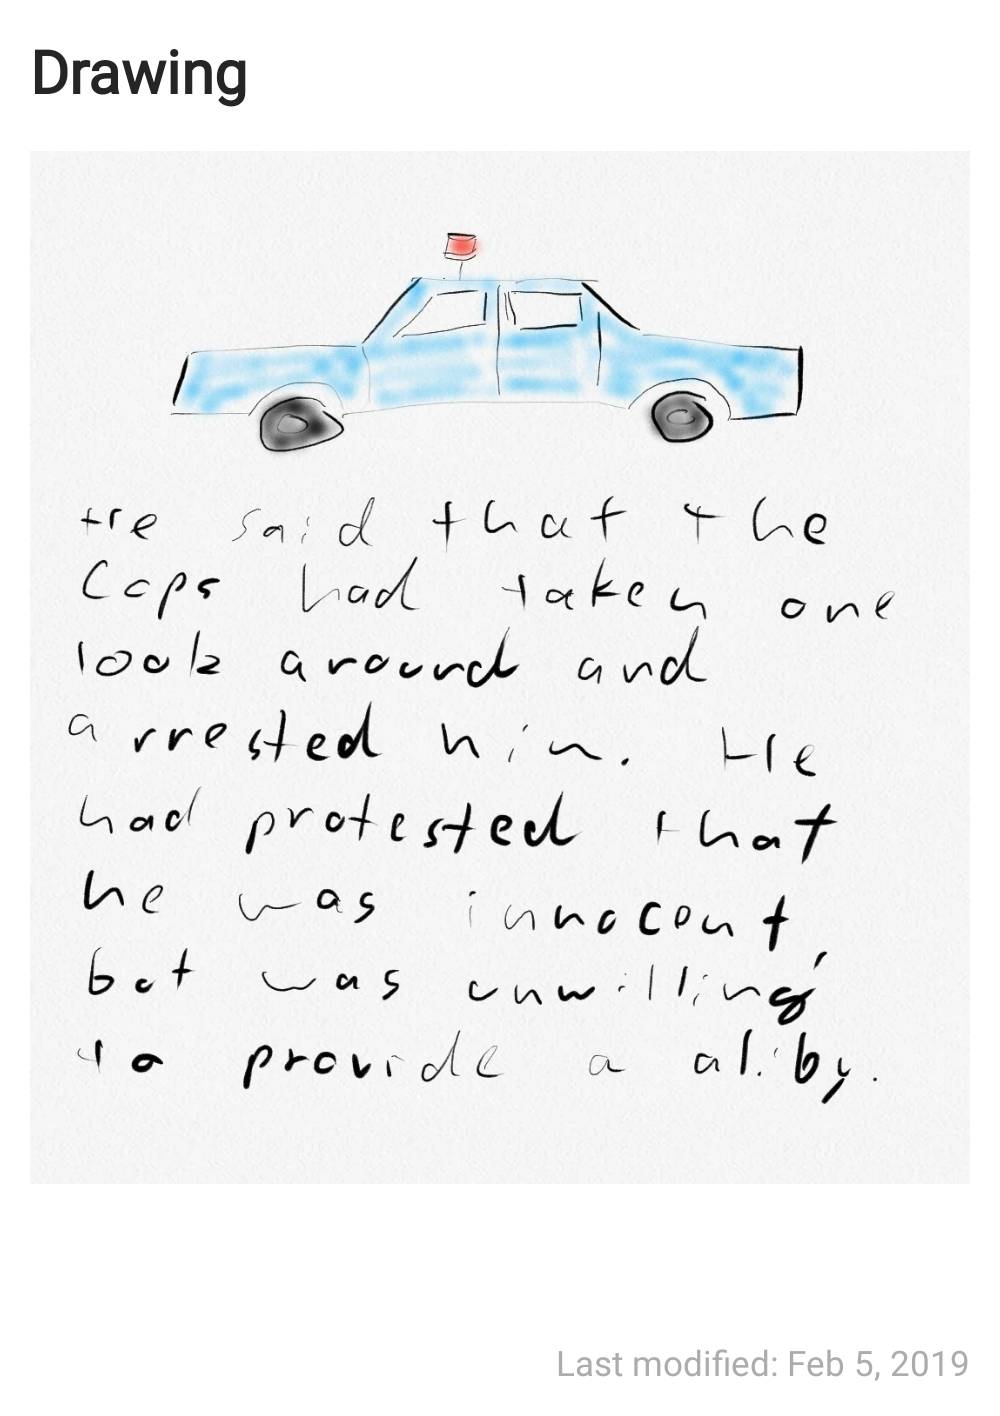 Drawing
He said that the
Cops had taken one
look around and
arrested him. He
had protested that
he was innocent,
but was unwilling
to provide a aliby.
Last modified: Feb 5, 2019